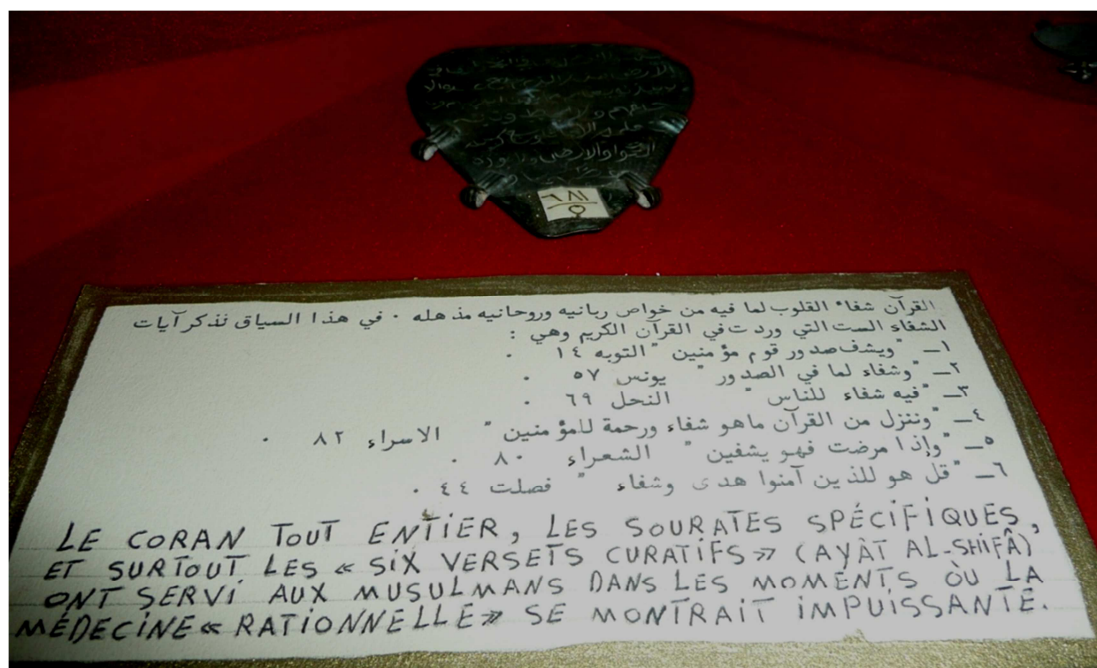 ٦٨١
٥
القرآن شفاء القلوب لما فيه من خواص ربانيه وروحانيه مذهله ٠ في هذا السياق نذكر آيات
الشفاء الست التي وردت في القرآن الكريم وهي :
١ـ "ويشف صدور قوم مؤمنين" التوبه ١٤ ٠
٢ـ "وشفاء لما في الصدور" يونس ٥٧ ٠
٣ـ "فيه شفاء للناس" النحل ٦٩ ٠
٤ـ "وننزل من القرآن ماهو شفاء ورحمة للمؤمنين" الاسراء ٨٢ ٠
٥ـ "وإذا مرضت فهو يشفين" الشعراء ٨٠ ٠
٦ـ "قل هو للذين آمنوا هدى وشفاء" فصلت ٤٤ ٠
LE CORAN TOUT ENTIER, LES SOURATES SPÉCIFIQUES,
ET SURTOUT LES « SIX VERSETS CURATIFS » (AYÀT AL-SHIFÂ)
ONT SERVI AUX MUSULMANS DANS LES MOMENTS OÙ LA
MÉDECINE « RATIONNELLE » SE MONTRAIT IMPUISSANTE.